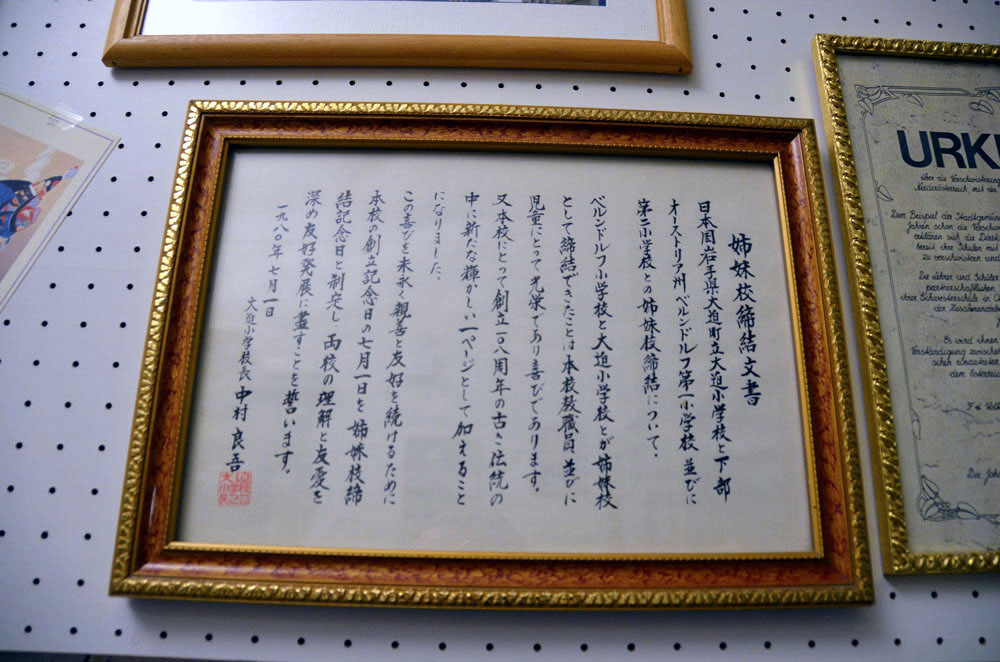 姉妹校締結文書
日本国岩手県大迫町立大迫小学校と下部
オーストリア州ベルンドルフ第一小学校並びに
第二小学校との姉妹校締結について.
ベルンドルフ小学校と大迫小学校とが姉妹校
として締結できたことは本校教職員並びに
児童にとって光栄であり喜びであります。
又本校にとって創立一〇八周年の古き伝統の
中に新たな輝かしい一ページとして加えること
になりました。
この喜びを末永く親善と友好を続けるために
本校の創立記念日の七月一日を姉妹校締
結記念日と制定し両校の理解と友愛を
深め友好発展に盡すことを誓います。
一九八〇年七月一日
大迫小学校長 中村良吾
URK
über die Verschwisterung
Niederösterreich, mit der
Dem Beispiel der Stadtgemein
Jahren schon die Verschwi
erklären sich die Direkti
bereit, ihre Schulen mit
zu verschwistern und
Die Lehrer und Schüler
partnerschaftlichen
ihrer Schwesterschule in
der Zusammenarbei
Er wird ihnen
Verständigung zwischen
schen abzustatten
dem österreich